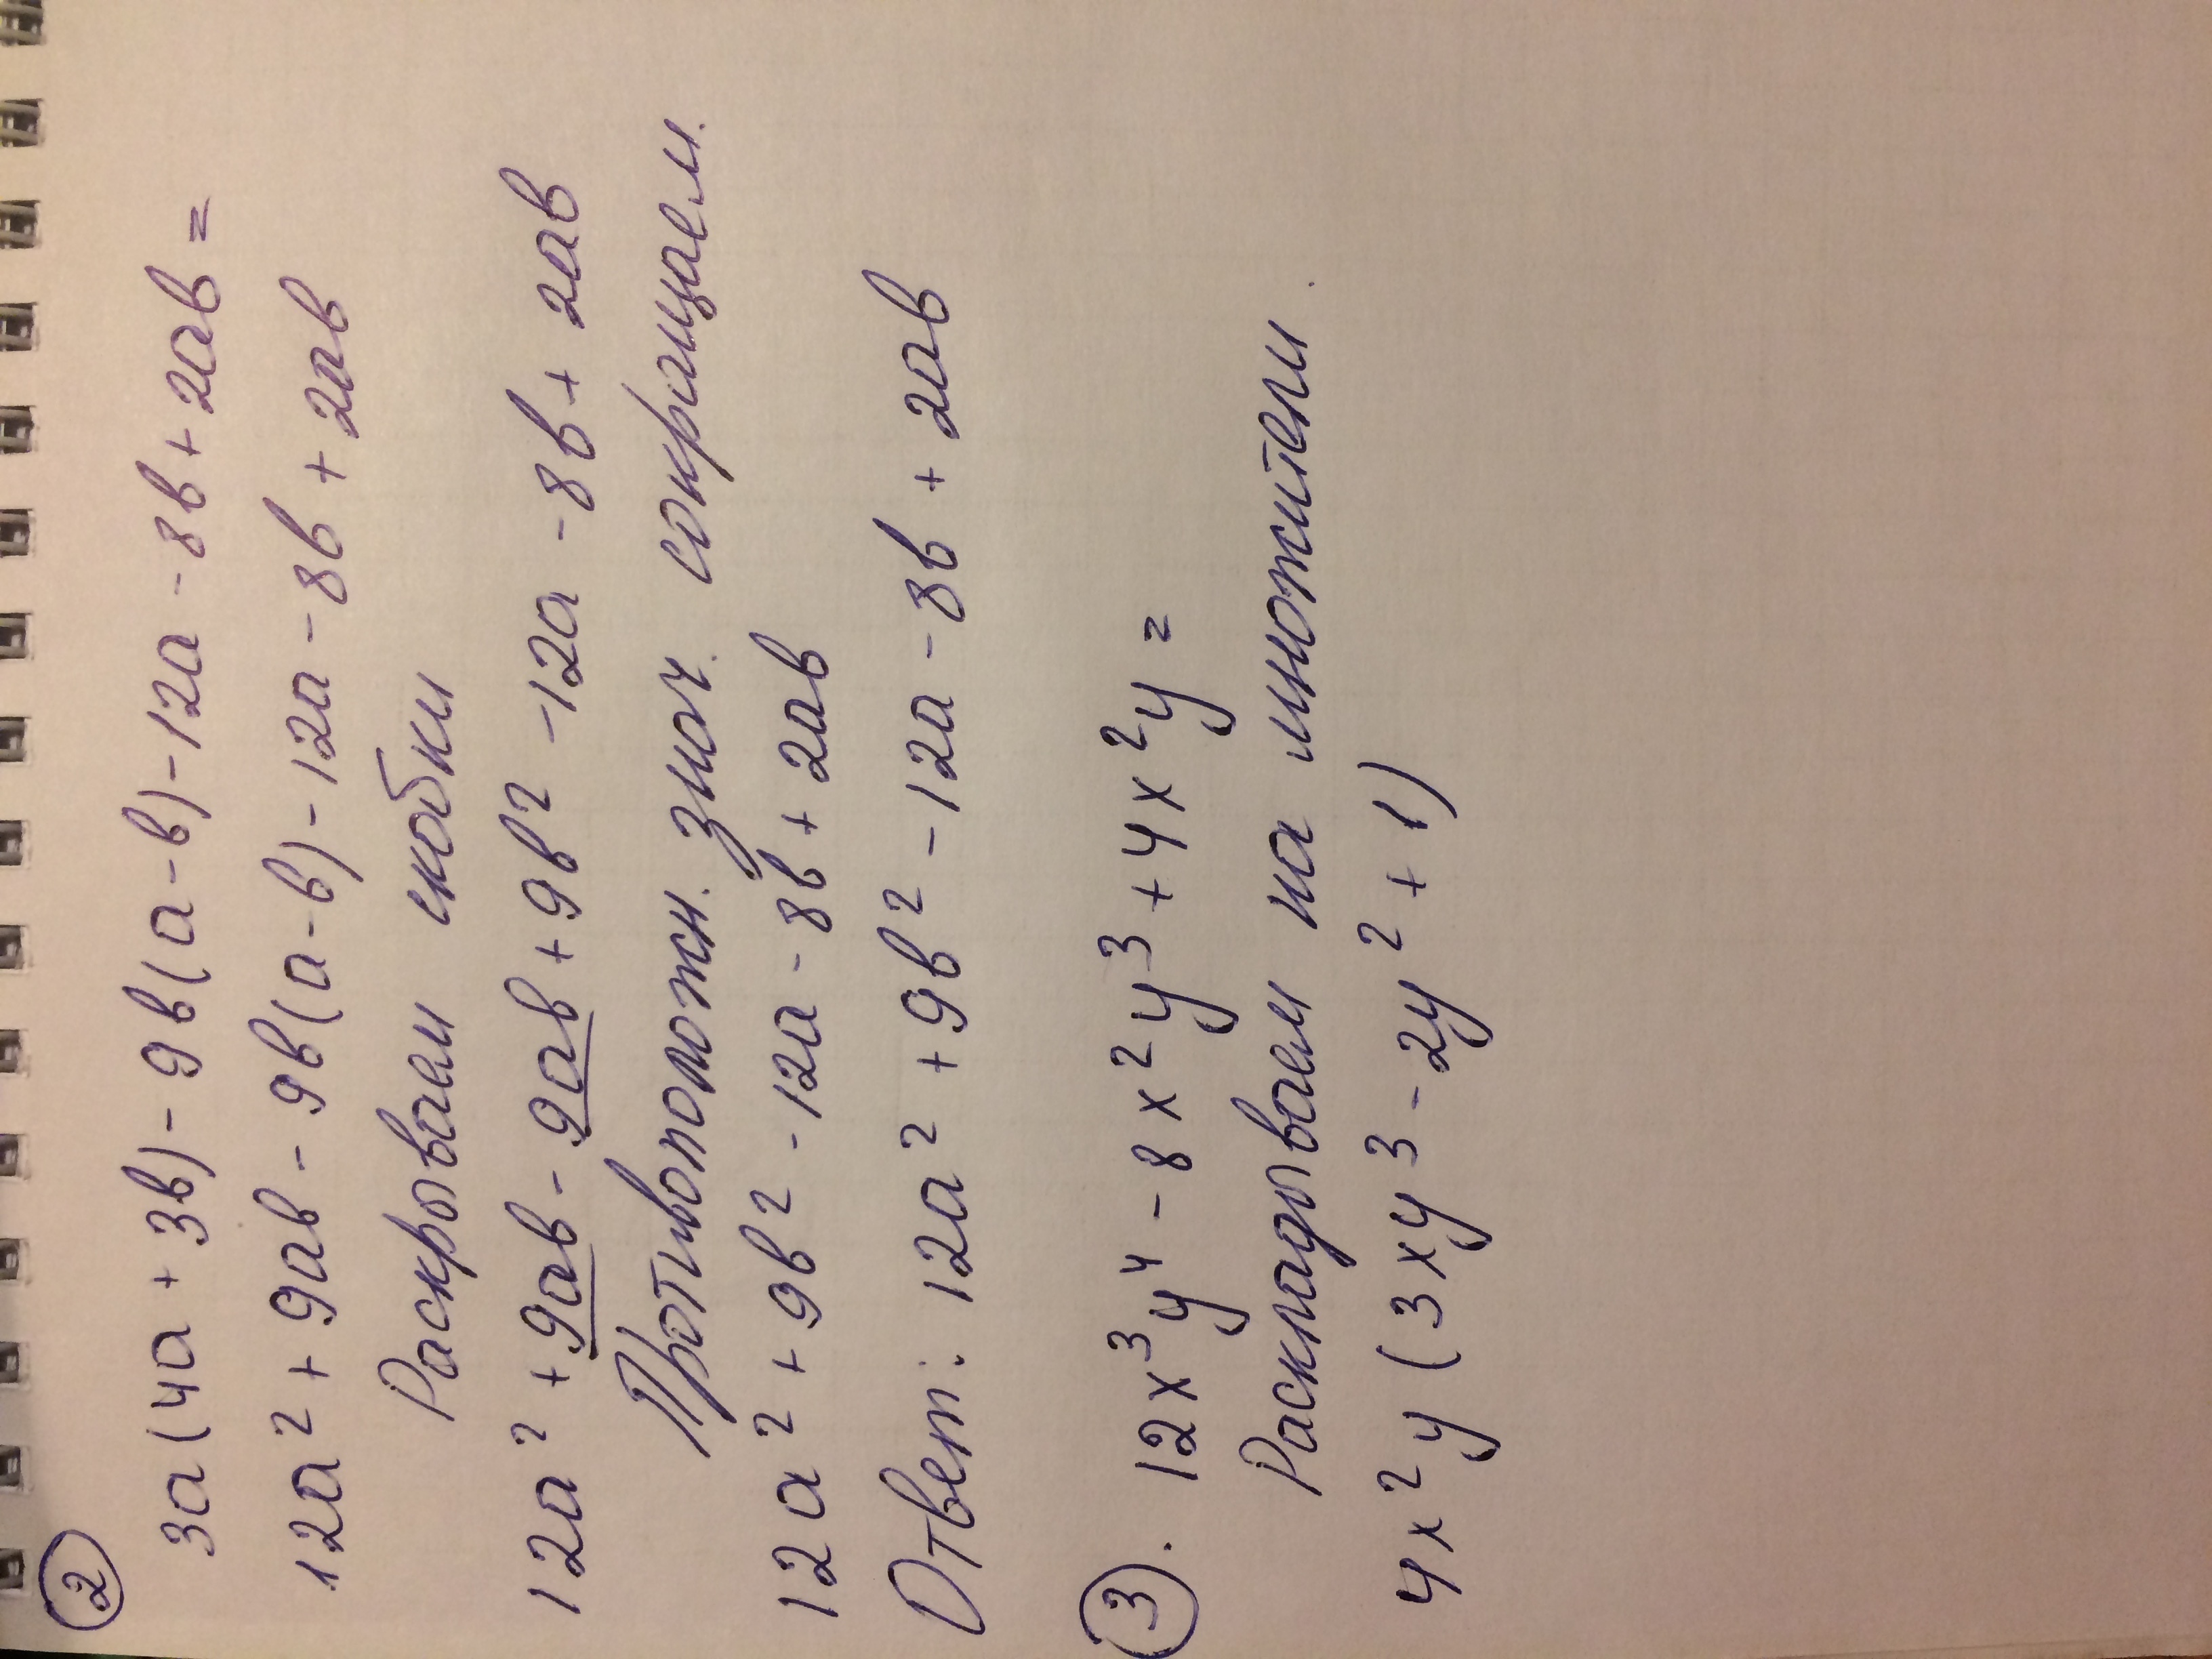 2
3а(4а+3в)-9в(а-в)-12а-8в+2ав=
12а²+9ав-9в(а-в)-12а-8в+2ав
Раскрываем скобки
12а²+9ав-9ав+9в²-12а-8в+2ав
Противоположн. знач. сокращаем.
12а²+9в²-12а-8в+2ав
Ответ: 12а²+9в²-12а-8в+2ав
3. 12x³y⁴-8x²y³+4x²y=
Раскладываем на множители.
4x²y(3xy³-2y²+1)